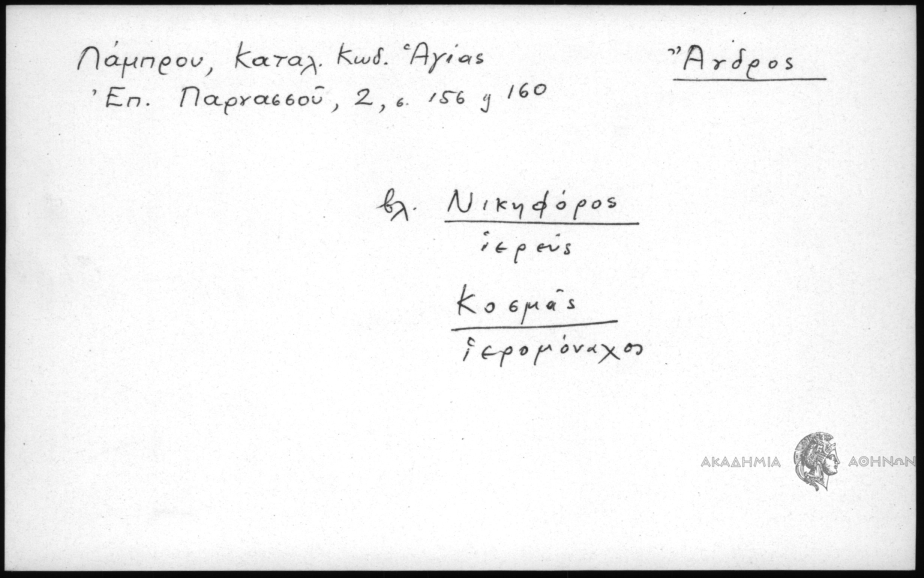 Λάμπρου, Καταλ. Κωδ. Ἁγίας
Ἐπ. Παρνασσοῦ, 2, σ. 156 ϗ 160
Ἄνδρος
βλ. Νικηφόρος
ἱερεύς
Κοσμᾶς
ἱερομόναχος
ΑΚΑΔΗΜΙΑ ΑΘΗΝΩΝ